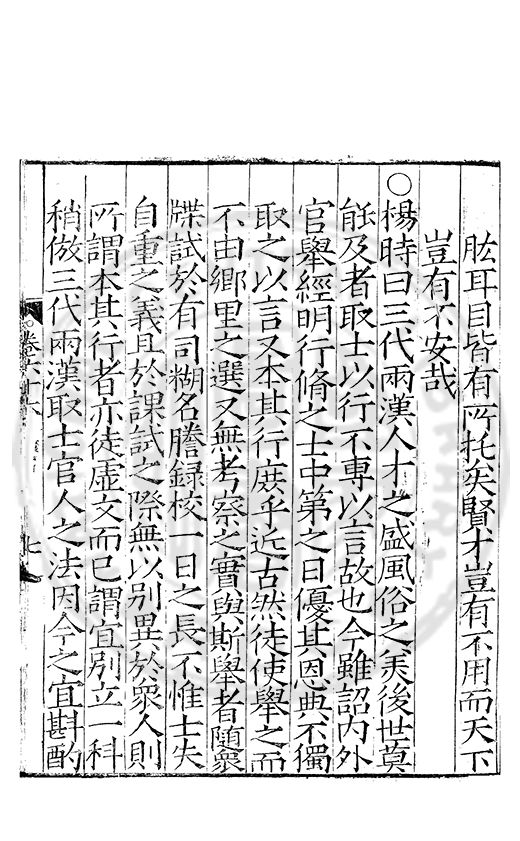 肱耳目皆有所托矣賢才豈有不用而天下
豈有不安哉
○楊時曰三代兩漢人才之盛風俗之美後世莫
能及者取士以行不專以言故也今雖詔內外
官舉經明行脩之士中第之日優其恩典不獨
取之以言又本其行庶乎近古然徒使舉之而
不由鄉里之選又無考察之實與斯舉者隨衆
牒試於有司糊名謄録校一日之長不惟士失
自重之義且於課試之際無以別異於衆人則
所謂本其行者亦徒虛文而已謂宜別立一科
稍倣三代兩漢取士官人之法因今之宜斟酌
卷六十六
七